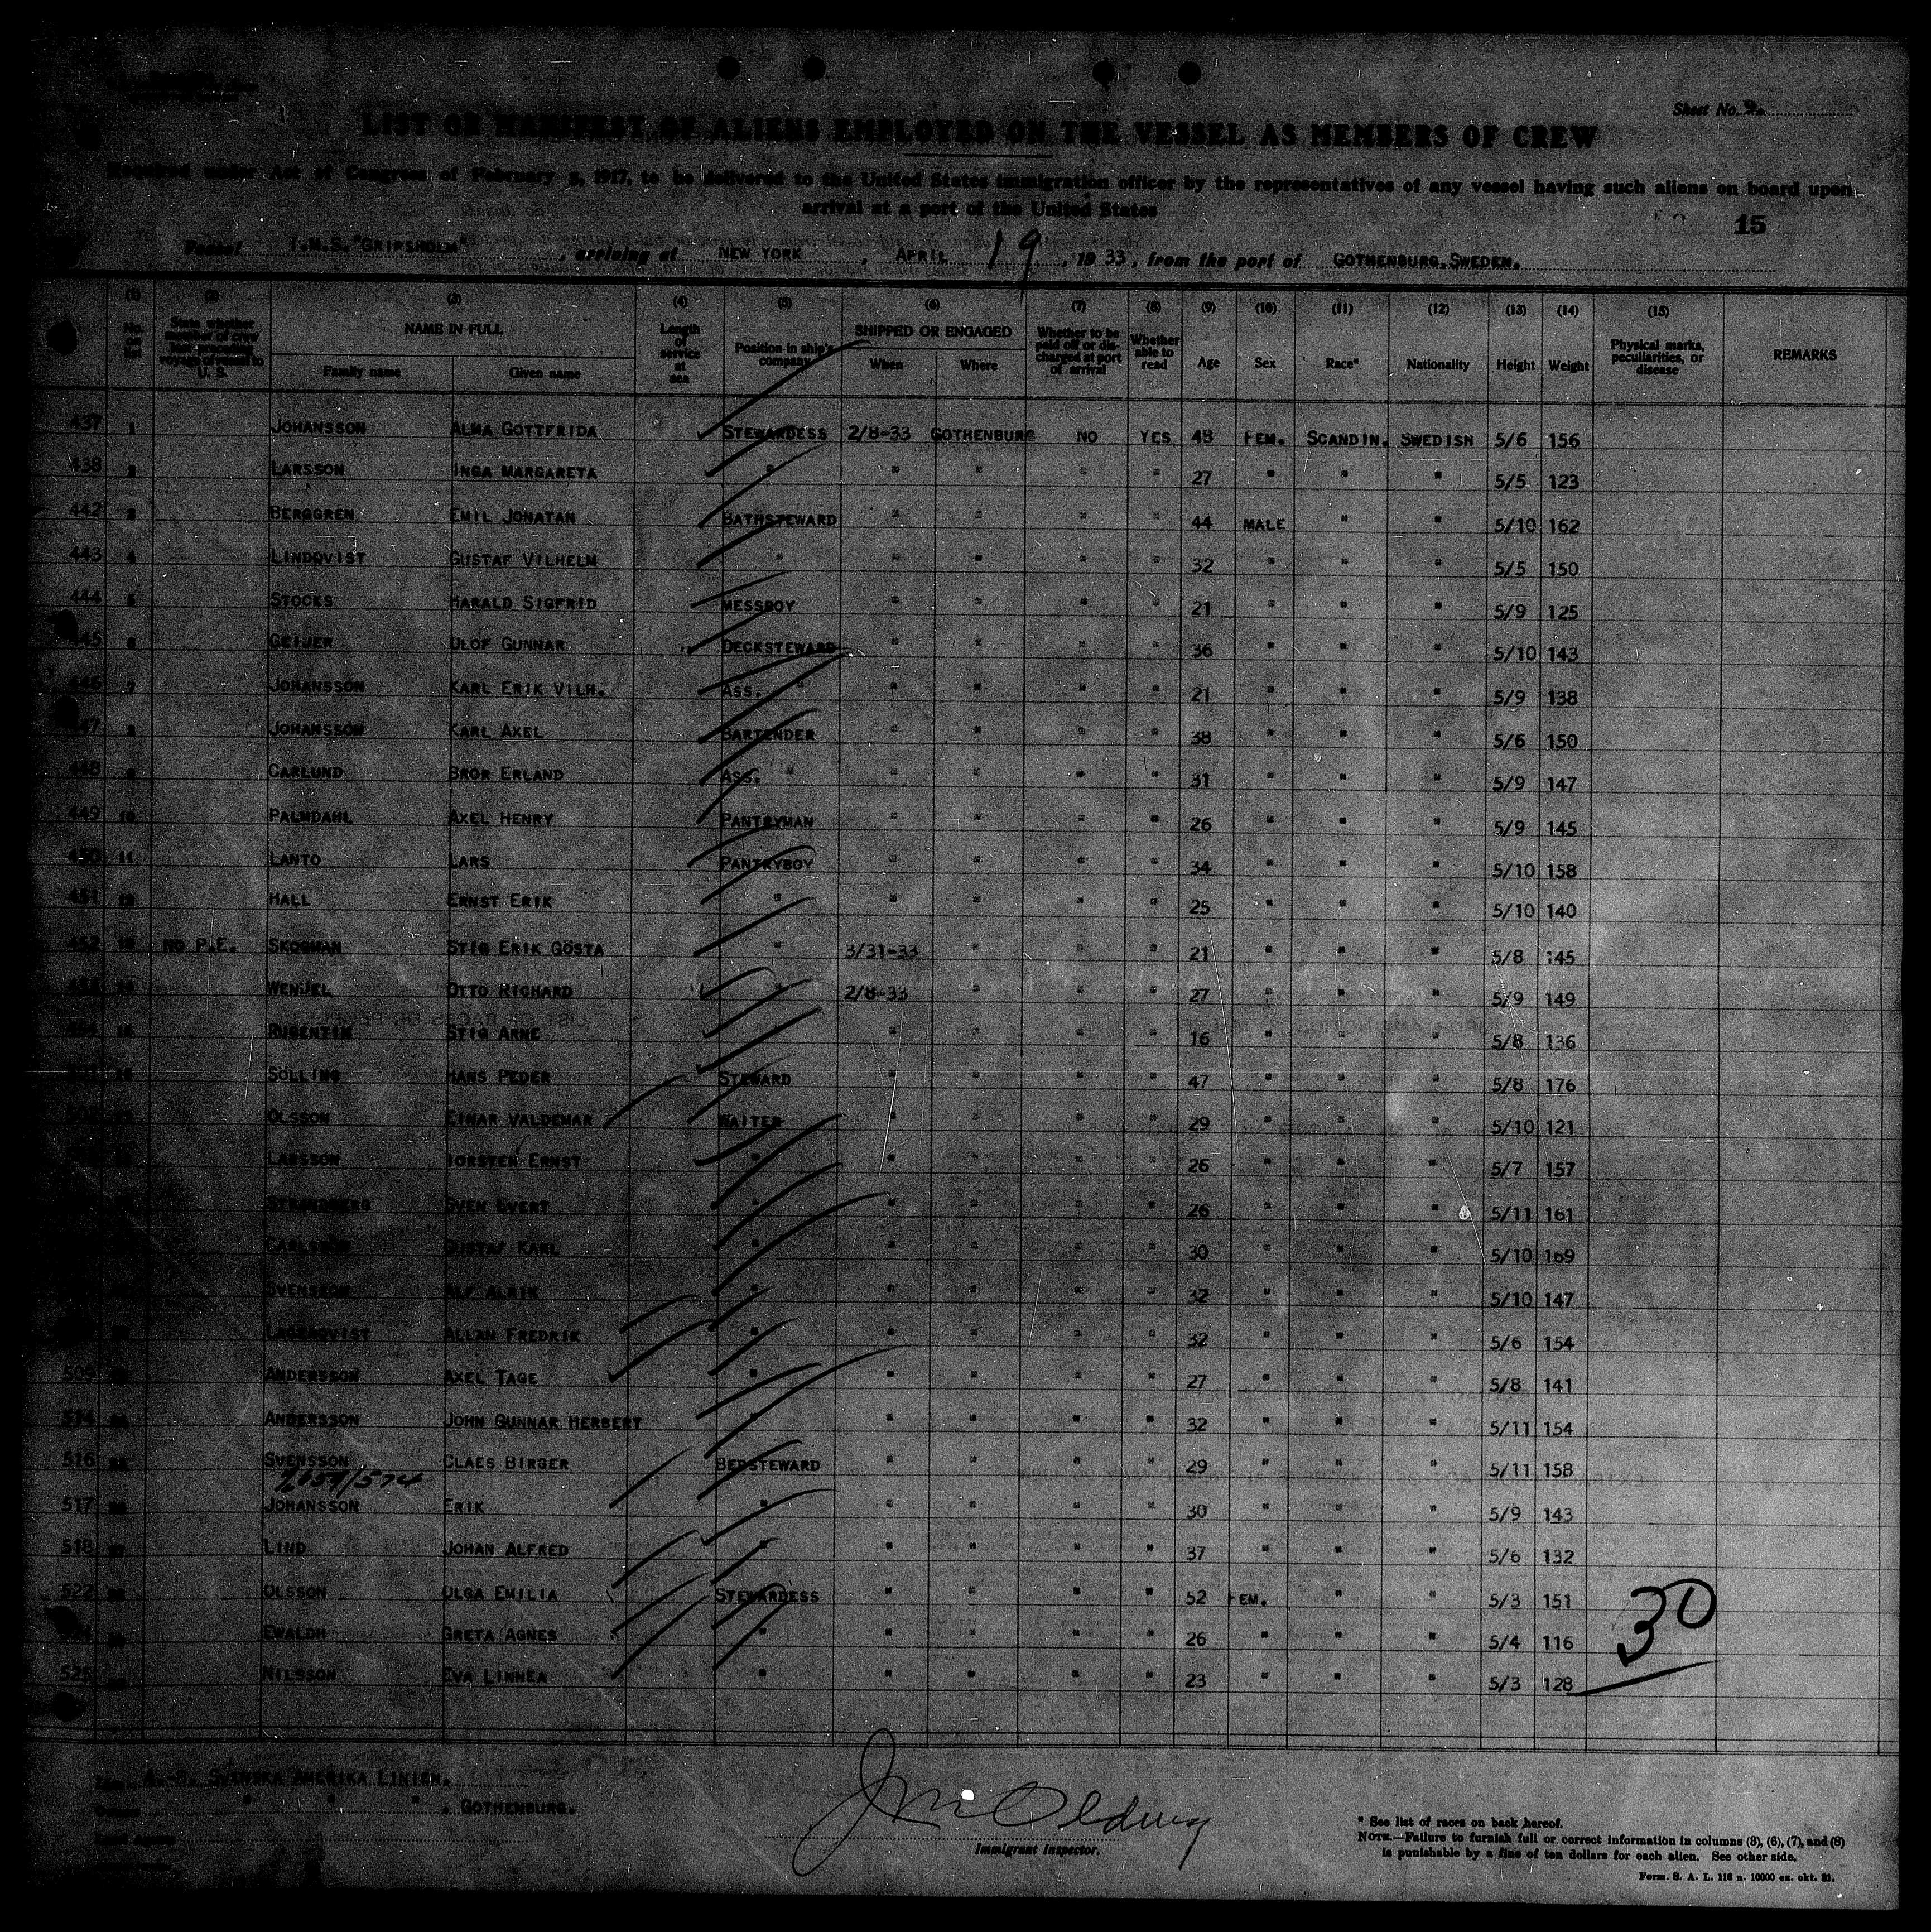 Sheet No. 9.
LIST OR MANIFEST OF ALIENS EMPLOYED ON THE VESSEL AS MEMBERS OF CREW
Required under Act of Congress of February 5, 1917, to be delivered to the United States immigration officer by the representatives of any vessel having such aliens on board upon
arrival at a port of the United States
15
Vessel T.M.S. "GRIPSHOLM", arriving at NEW YORK, APRIL 19, 1933, from the port of GOTHENBURG, SWEDEN.
(1) (2) (3) (4) (5) (6) (7) (8) (9) (10) (11) (12) (13) (14) (15)
No. on list State whether member of crew last preceding voyage of vessel to U. S. NAME IN FULL Family name Given name Length of service at sea Position in ship's company SHIPPED OR ENGAGED When Where Whether to be paid off or discharged at port of arrival Whether able to read Age Sex Race* Nationality Height Weight Physical marks, peculiarities, or disease REMARKS
437 1 JOHANSSON ALMA GOTTFRIDA STEWARDESS 2/8-33 GOTHENBURG NO YES 48 FEM. SCANDIN. SWEDISH 5/6 156
438 2 LARSSON INGA MARGARETA " " " " " 27 " " " 5/5 123
442 3 BERGGREN EMIL JONATAN BATHSTEWARD " " " " 44 MALE " " 5/10 162
443 4 LINDQVIST GUSTAF VILHELM " " " " " 32 " " " 5/5 150
444 5 STOCKS HARALD SIGFRID MESSBOY " " " " 21 " " " 5/9 125
445 6 GEIJER OLOF GUNNAR DECKSTEWARD " " " " 36 " " " 5/10 143
446 7 JOHANSSON KARL ERIK VILH. ASS. " " " " " 21 " " " 5/9 138
447 8 JOHANSSON KARL AXEL BARTENDER " " " " 38 " " " 5/6 150
448 9 CARLUND BROR ERLAND ASS. " " " " " 31 " " " 5/9 147
449 10 PALMDAHL AXEL HENRY PANTRYMAN " " " " 26 " " " 5/9 145
450 11 LANTO LARS PANTRYBOY " " " " 34 " " " 5/10 158
451 12 HALL ERNST ERIK " " " " " 25 " " " 5/10 140
452 13 NO P.E. SKOGMAN STIG ERIK GÖSTA " 3/31-33 " " " 21 " " " 5/8 145
453 14 WENJEL OTTO RICHARD " 2/8-33 " " " 27 " " " 5/9 149
454 15 RUSENTIN STIG ARNE " " " " 16 " " " 5/8 136
SÖLLING HANS PEDER STEWARD " " " " 47 " " " 5/8 176
OLSSON EINAR VALDEMAR WAITER " " " " 29 " " " 5/10 121
LARSSON TORSTEN ERNST " " " " " 26 " " " 5/7 157
STRANDBERG SVEN EVERT " " " " " 26 " " " 5/11 161
CARLSSON GUSTAF KARL " " " " " 30 " " " 5/10 169
SVENSSON ALF ALRIK " " " " " 32 " " " 5/10 147
LAGERQVIST ALLAN FREDRIK " " " " " 32 " " " 5/6 154
509 ANDERSSON AXEL TAGE " " " " " 27 " " " 5/8 141
514 ANDERSSON JOHN GUNNAR HERBERT " " " " " 32 " " " 5/11 154
516 SVENSSON CLAES BIRGER BEDSTEWARD " " " " 29 " " " 5/11 158
517 JOHANSSON ERIK " " " " " 30 " " " 5/9 143
518 LIND JOHAN ALFRED " " " " " 37 " " " 5/6 132
522 OLSSON OLGA EMILIA STEWARDESS " " " " 52 FEM. " " 5/3 151
EWALDH GRETA AGNES " " " " " 26 " " " 5/4 116
525 NILSSON EVA LINNEA " " " " " 23 " " " 5/3 128
30
Line A.-B. SVENSKA AMERIKA LINIEN.
Owner " " " , GOTHENBURG.
Local agent
Immigrant Inspector.
* See list of races on back hereof.
NOTE.—Failure to furnish full or correct information in columns (3), (6), (7), and (8)
is punishable by a fine of ten dollars for each alien. See other side.
Form. S. A. L. 116 n. 10000 ex. okt. 31.